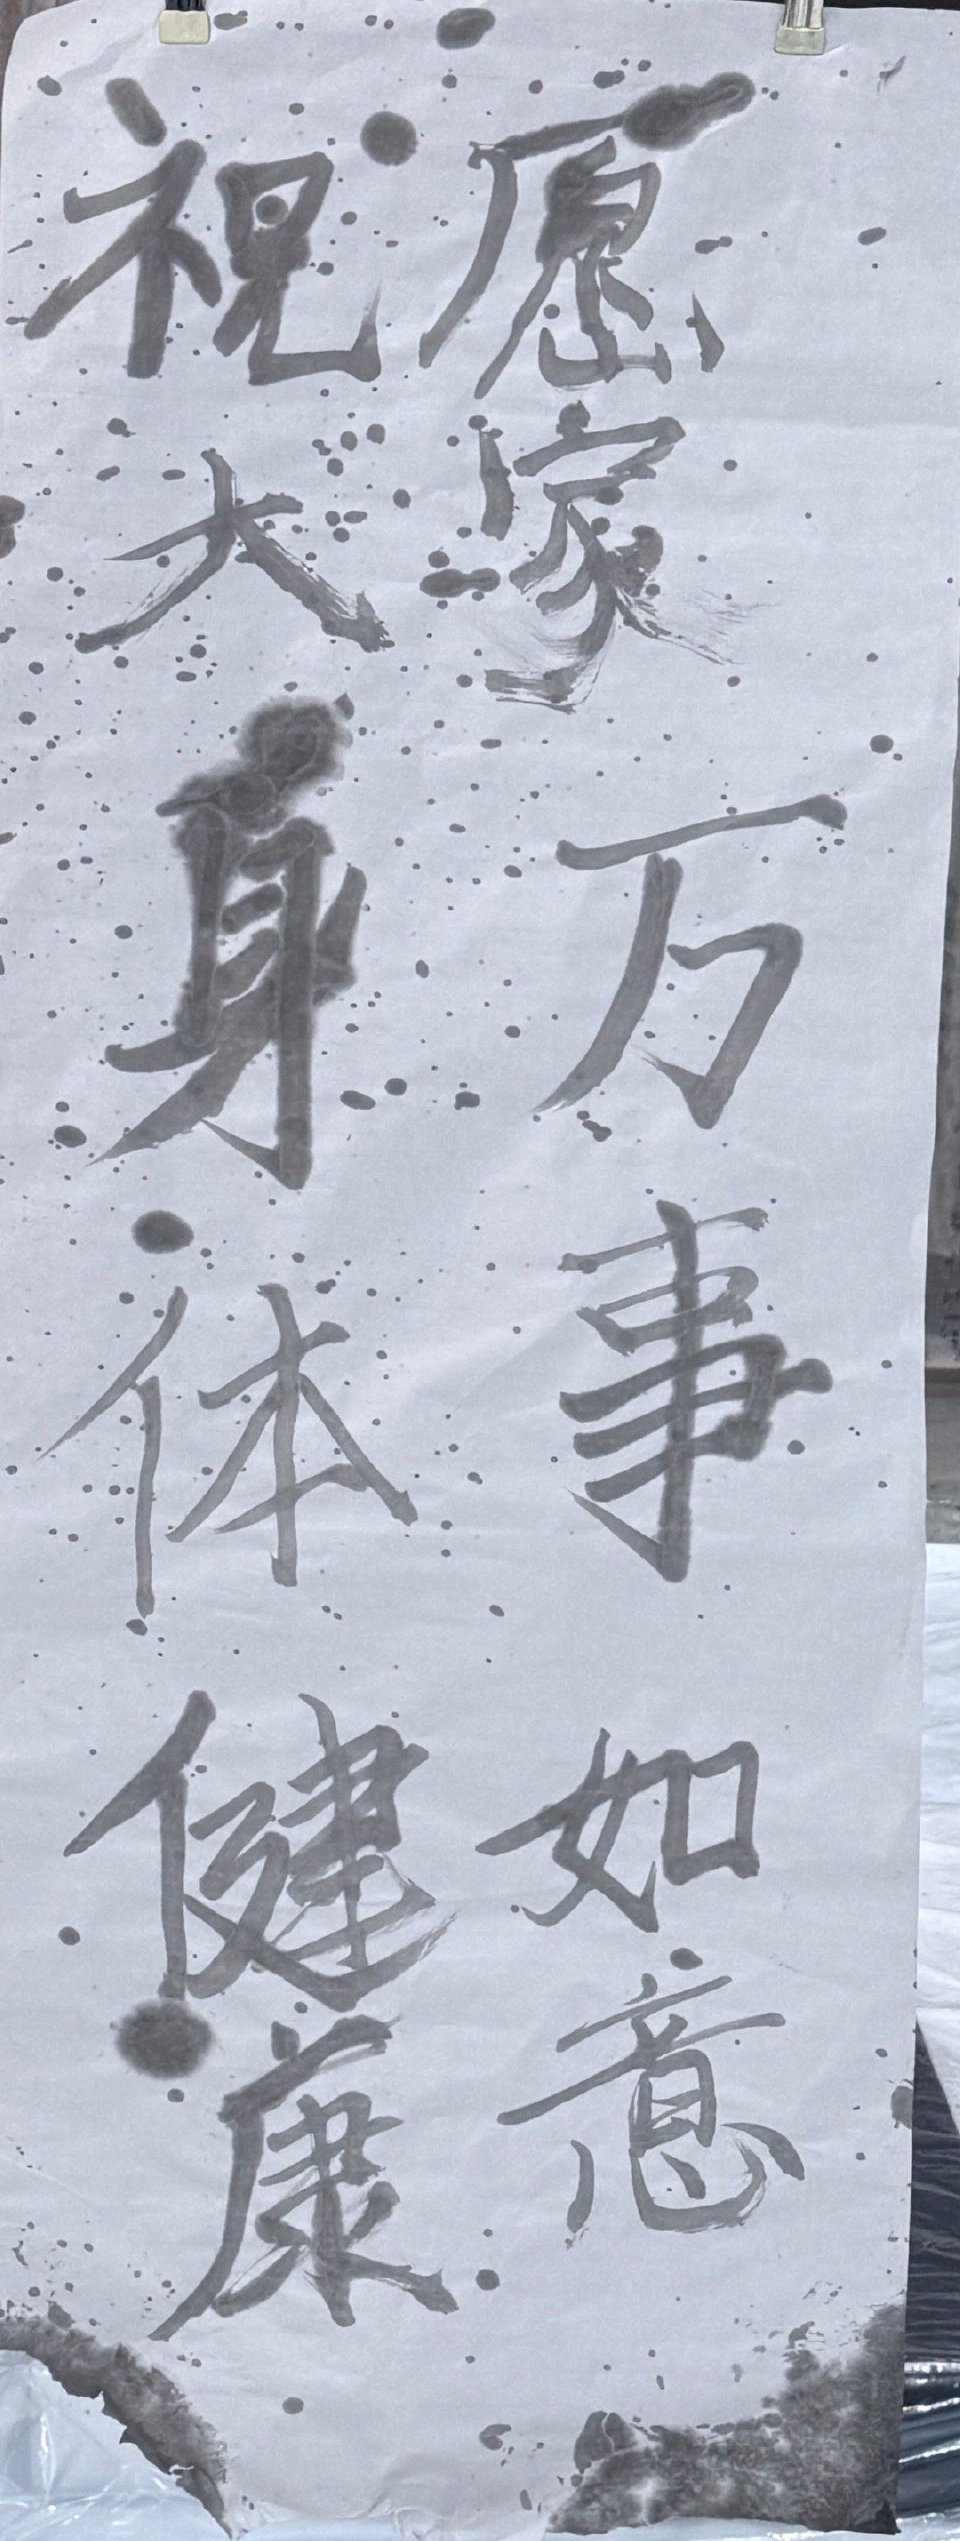 祝愿
大家
身体健康
万事如意